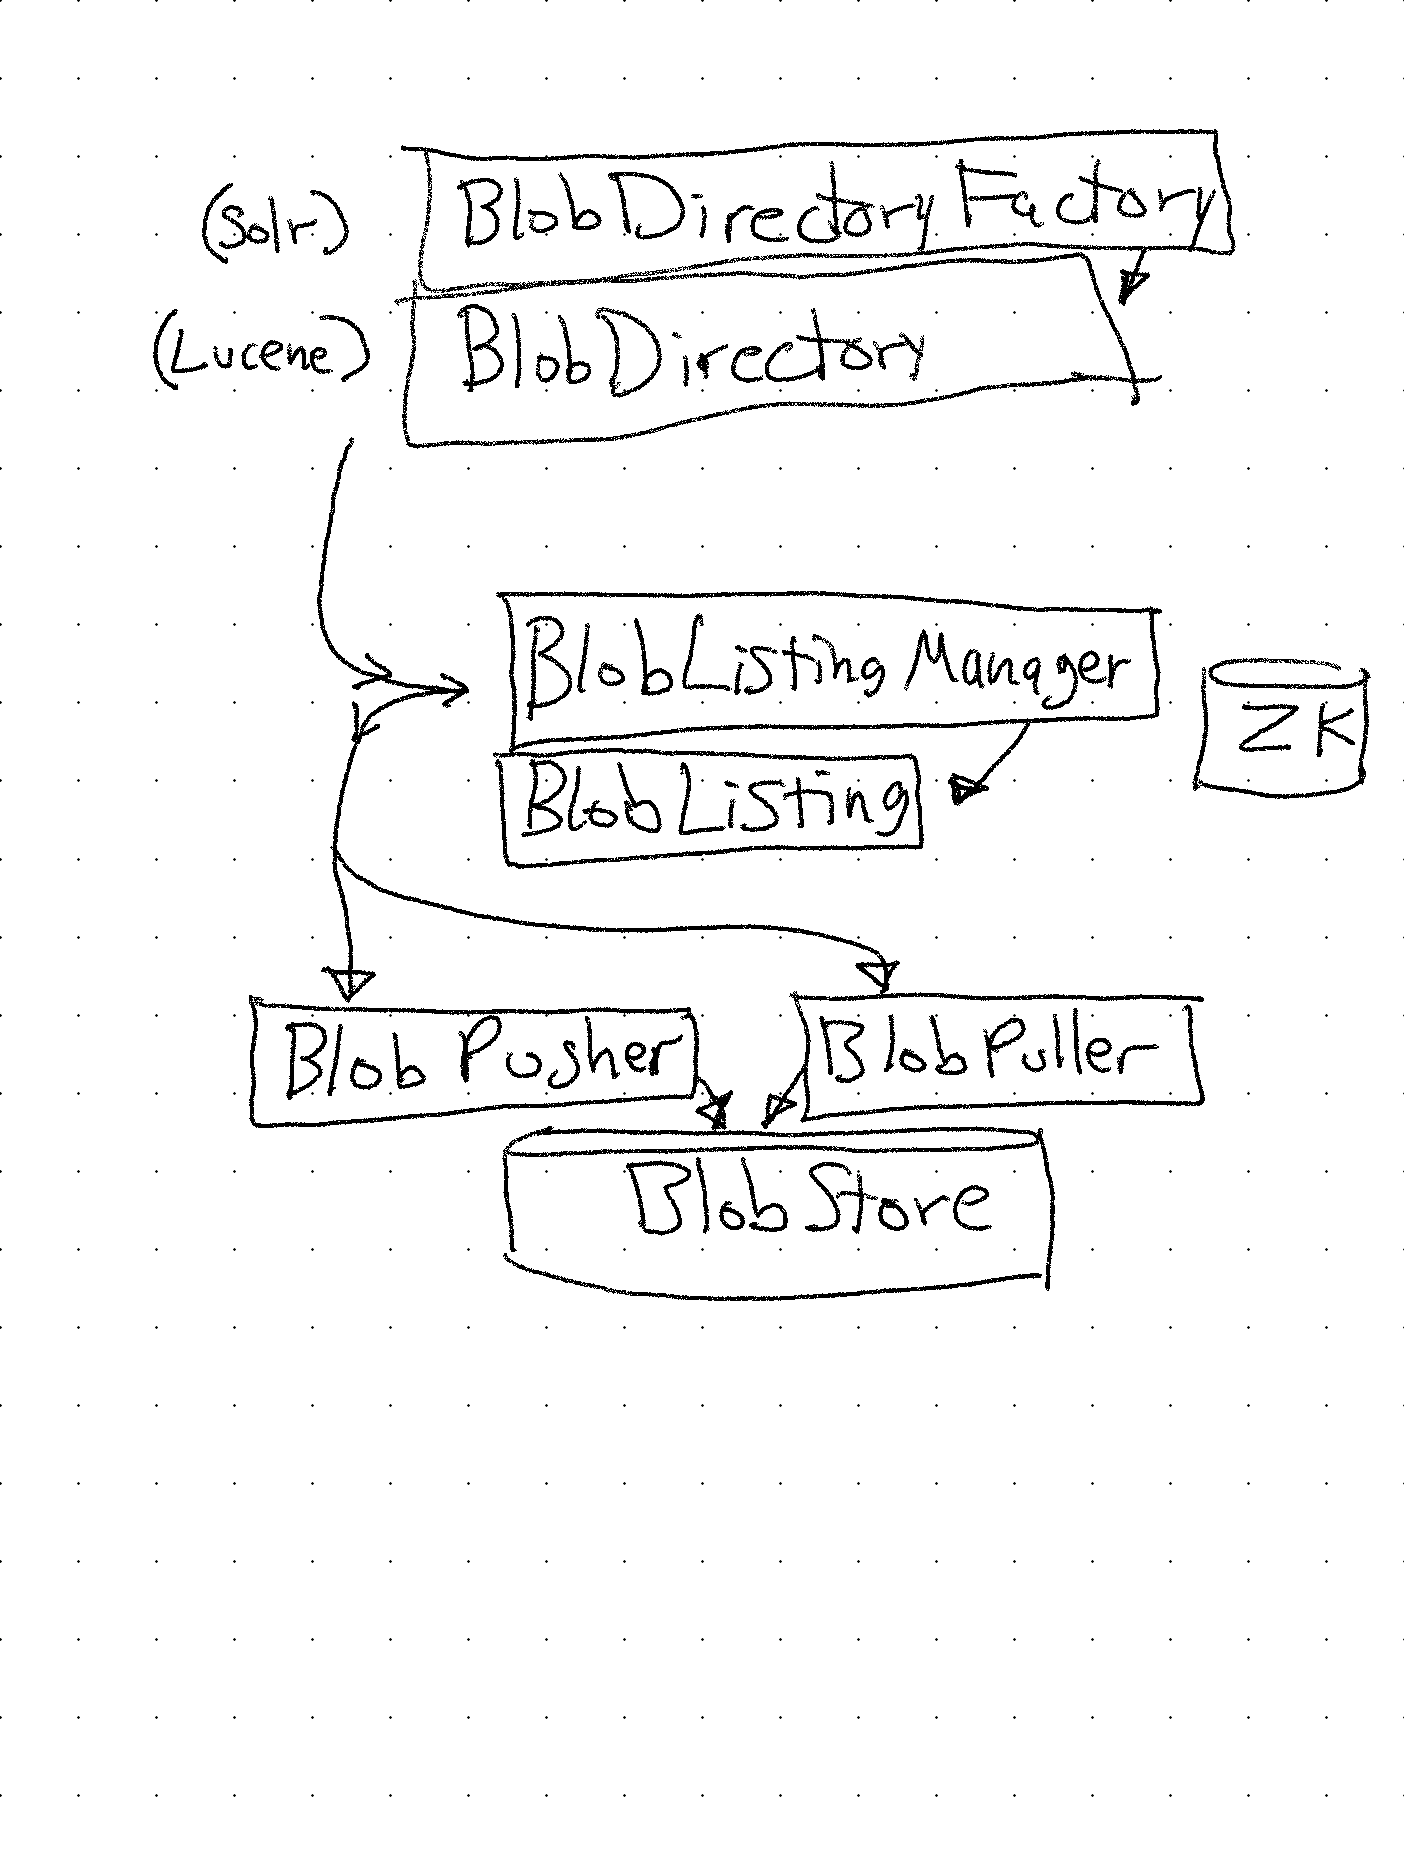 (Solr) BlobDirectoryFactory
(Lucene) BlobDirectory
BlobListingManager
ZK
BlobListing
BlobPusher
BlobPuller
BlobStore